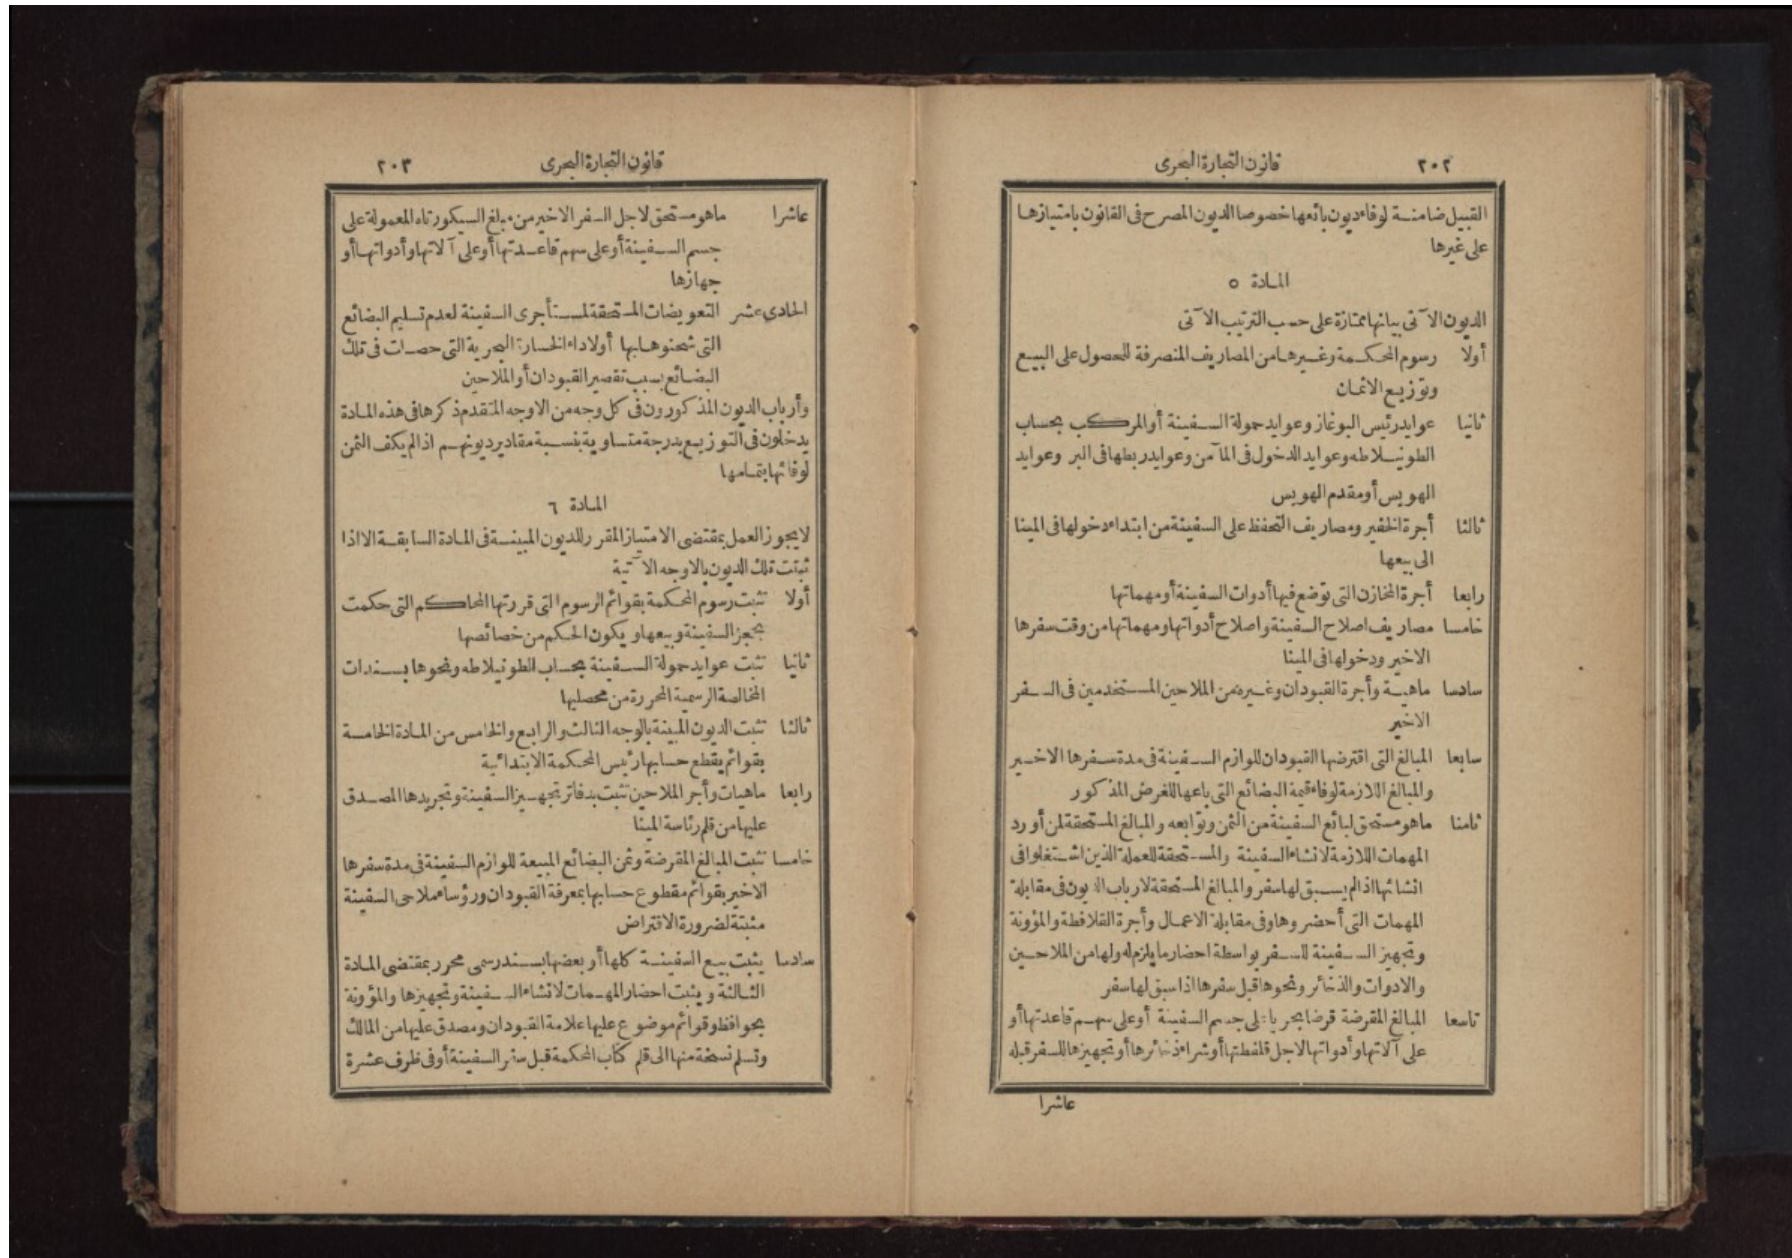 ٢٠٢ قانون التجارة البحرى
القبيل ضامنة لوفاء ديون بائعها خصوصا الديون المصرح فى القانون بامتيازها
على غيرها
المادة ٥
الديون الآتى بيانها ممتازة على حسب الترتيب الآتى
أولا رسوم المحكمة وغيرها من المصاريف المنصرفة للحصول على البيع
وتوزيع الاثمان
ثانيا عوايد رئيس البوغاز وعوايد حمولة السفينة أو المركب بحساب
الطونيلاطه وعوايد الدخول فى المآمن وعوايد ربطها فى البر وعوايد
الهويس أو مقدم الهويس
ثالثا أجرة الخفير ومصاريف التحفظ على السفينة من ابتداء دخولها فى المينا
الى بيعها
رابعا أجرة المخازن التى توضع فيها أدوات السفينة أو مهماتها
خامسا مصاريف اصلاح السفينة واصلاح أدواتها ومهماتها من وقت سفرها
الاخير ودخولها فى المينا
سادسا ماهية وأجرة القبودان وغيره من الملاحين المستخدمين فى السفر
الاخير
سابعا المبالغ التى اقترضها القبودان للوازم السفينة فى مدة سفرها الاخير
والمبالغ اللازمة لوفاء قيمة البضائع التى باعها للغرض المذكور
ثامنا ماهو مستحق لبائع السفينة من الثمن وتوابعه والمبالغ المستحقة لمن أورد
المهمات اللازمة لانشاء السفينة والمستحقة للعملة الذين اشتغلوا فى
انشائها اذا لم يسبق لها سفر والمبالغ المستحقة لارباب الديون فى مقابلة
المهمات التى أحضروها وفى مقابلة الاعمال وأجرة القلافطة والمؤونة
وتجهيز السفينة للسفر بواسطة احضار ما يلزم له ولها من الملاحين
والادوات والذخائر ونحوها قبل سفرها اذا سبق لها سفر
تاسعا المبالغ المقرضة قرضا بحريا على جسم السفينة أو على سهم قاعدتها أو
على آلاتها وأدواتها لاجل قلفطتها أو شراء ذخائرها أو تجهيزها للسفر قبله
عاشرا
قانون التجارة البحرى ٢٠٣
عاشرا ماهو مستحق لاجل السفر الاخير من مبلغ السيكورتاه المعمولة على
جسم السفينة أو على سهم قاعدتها أو على آلاتها وأدواتها أو
جهازها
الحادى عشر التعويضات المستحقة لمستأجرى السفينة لعدم تسليم البضائع
التى شحنوها بها أو لاداء الخسارة البحرية التى حصلت فى تلك
البضائع بسبب تقصير القبودان أو الملاحين
وأرباب الديون المذكورون فى كل وجه من الاوجه المتقدم ذكرها فى هذه المادة
يدخلون فى التوزيع بدرجة متساوية بنسبة مقادير ديونهم اذا لم يكف الثمن
لوفائها بتمامها
المادة ٦
لا يجوز العمل بمقتضى الامتياز المقرر للديون المبينة فى المادة السابقة الا اذا
ثبتت تلك الديون بالاوجه الآتية
أولا تثبت رسوم المحكمة بقوائم الرسوم التى قررتها المحاكم التى حكمت
بحجز السفينة وبيعها ويكون الحكم من خصائصها
ثانيا تثبت عوايد حمولة السفينة بحساب الطونيلاطه ونحوها بسندات
المخالصة الرسمية المحررة من محصليها
ثالثا تثبت الديون المبينة بالوجه الثالث والرابع والخامس من المادة الخامسة
بقوائم يقطع حسابها رئيس المحكمة الابتدائية
رابعا ماهيات وأجر الملاحين تثبت بدفاتر تجهيز السفينة وتجريدها المصدق
عليها من قلم رئاسة المينا
خامسا تثبت المبالغ المقرضة وثمن البضائع المبيعة للوازم السفينة فى مدة سفرها
الاخير بقوائم مقطوع حسابها بمعرفة القبودان ورؤساء ملاحى السفينة
مثبتة لضرورة الاقتراض
سادسا يثبت بيع السفينة كلها أو بعضها بسند رسمى محرر بمقتضى المادة
الثالثة ويثبت احضار المهمات لانشاء السفينة وتجهيزها والمؤونة
بحوافظ وقوائم موضوع عليها علامة القبودان ومصدق عليها من المالك
وتسلم نسخة منها الى قلم كتاب المحكمة قبل سفر السفينة أو فى ظرف عشرة